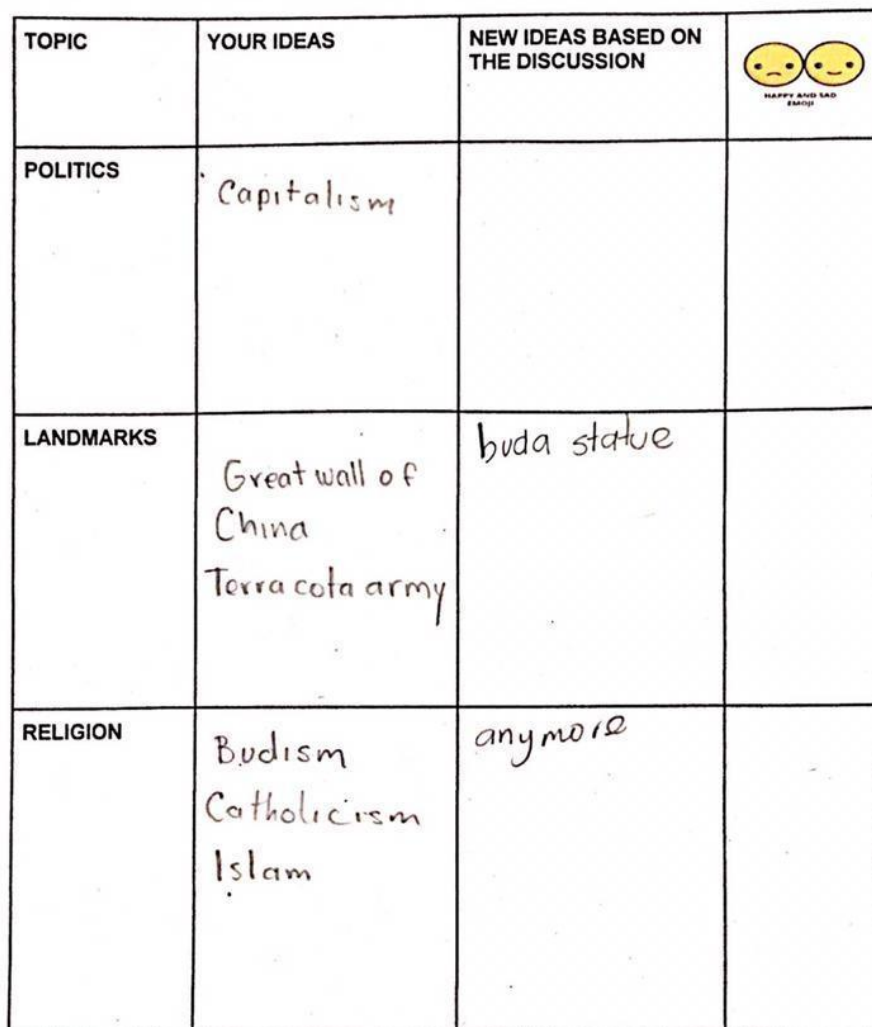 TOPIC
YOUR IDEAS
NEW IDEAS BASED ON
THE DISCUSSION
HAPPY AND SAD
EMOJI
POLITICS
Capitalism
LANDMARKS
Great wall of
China
Terra cota army
buda statue
RELIGION
Budism
Catholicism
Islam
anymore